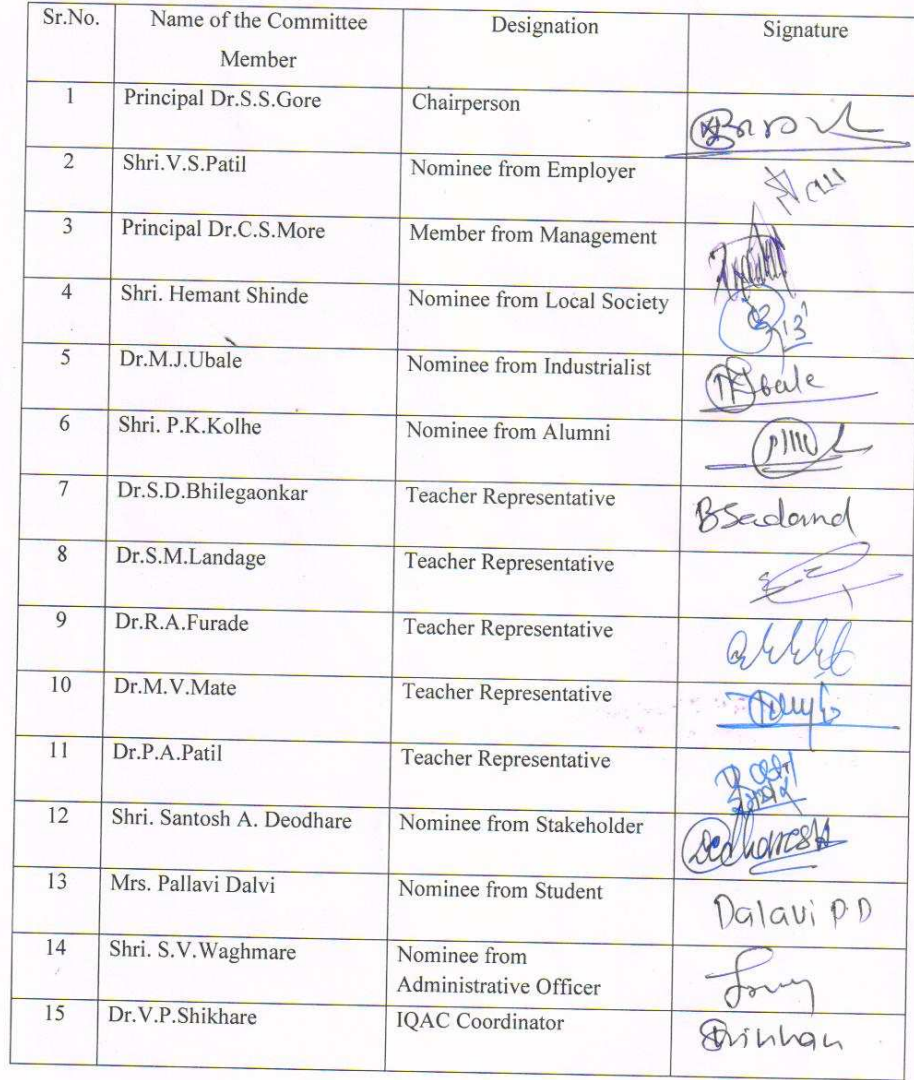 Sr.No. Name of the Committee Member Designation Signature
1 Principal Dr.S.S.Gore Chairperson
2 Shri.V.S.Patil Nominee from Employer
3 Principal Dr.C.S.More Member from Management
4 Shri. Hemant Shinde Nominee from Local Society
5 Dr.M.J.Ubale Nominee from Industrialist
6 Shri. P.K.Kolhe Nominee from Alumni
7 Dr.S.D.Bhilegaonkar Teacher Representative
8 Dr.S.M.Landage Teacher Representative
9 Dr.R.A.Furade Teacher Representative
10 Dr.M.V.Mate Teacher Representative
11 Dr.P.A.Patil Teacher Representative
12 Shri. Santosh A. Deodhare Nominee from Stakeholder
13 Mrs. Pallavi Dalvi Nominee from Student Dalavi P D
14 Shri. S.V.Waghmare Nominee from
Administrative Officer
15 Dr.V.P.Shikhare IQAC Coordinator